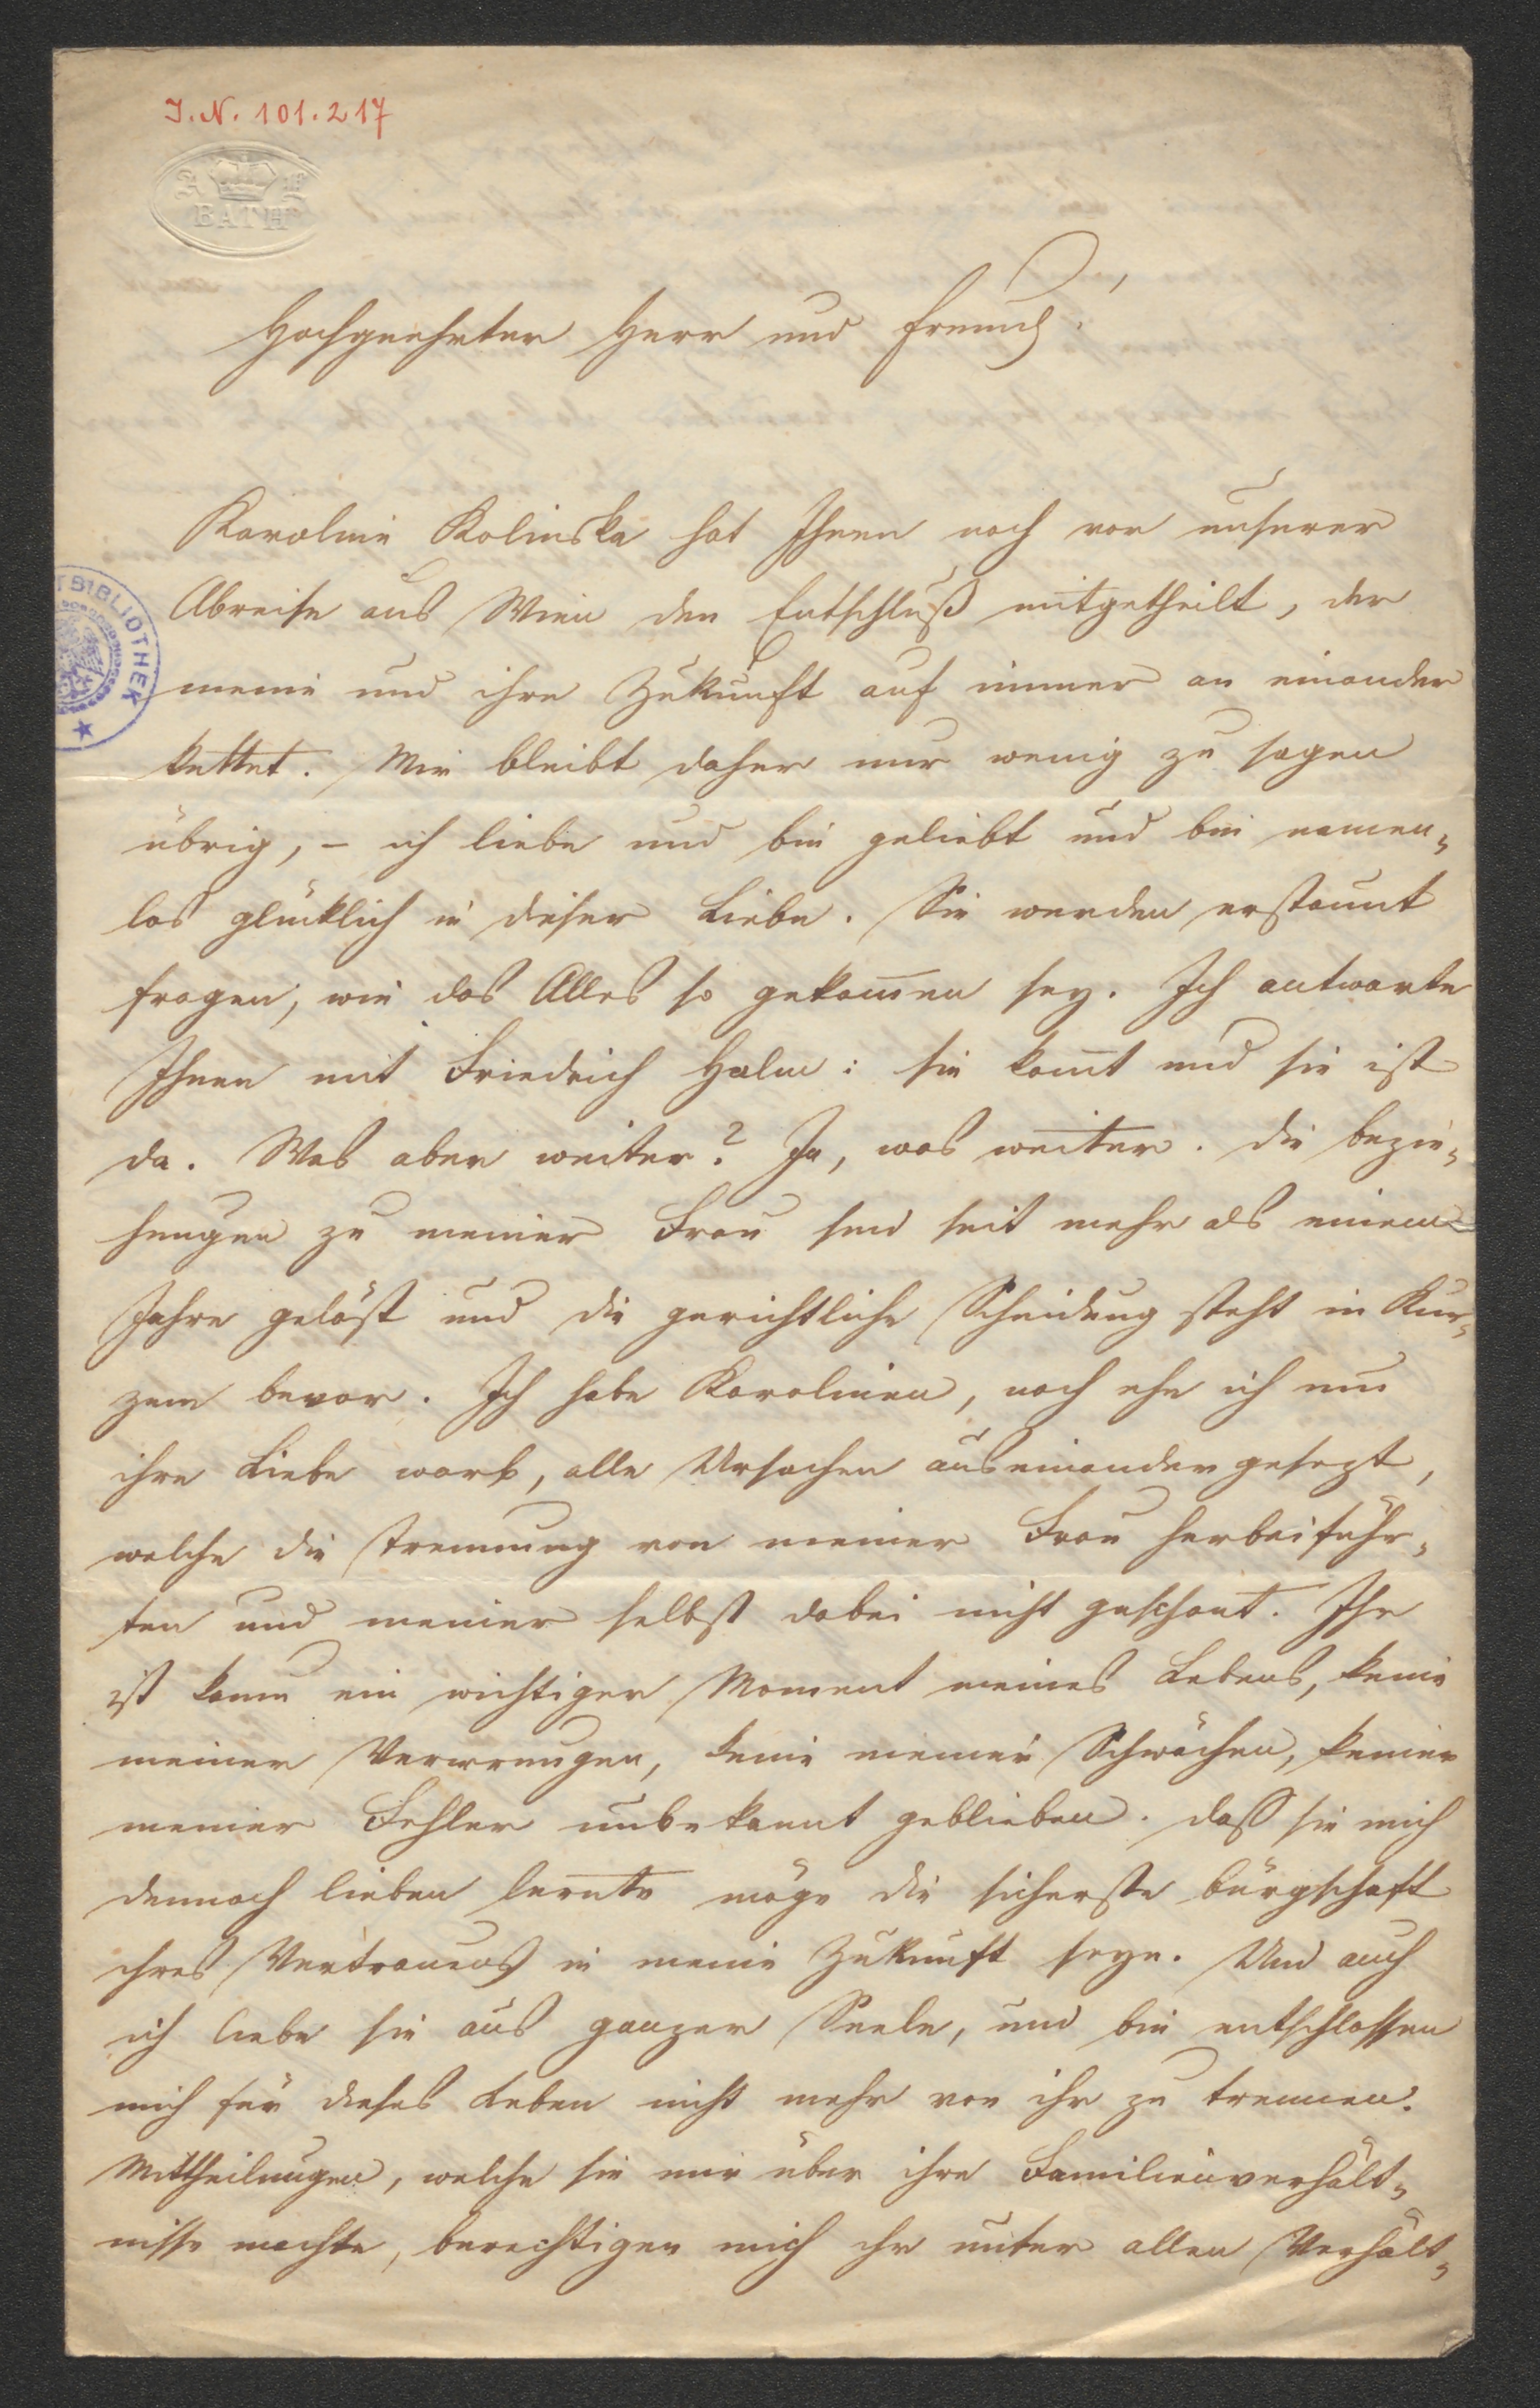 J.N. 101.217
BATH
BIBLIOTHEK
Hochgeehrter Herr und Freund!
Karoline Kolinska hat Ihnen noch vor unserer
Abreise aus Wien den Entschluß mitgetheilt, der
meine und ihre Zukunft auf immer an einander
kettet. Mir bleibt daher nur wenig zu sagen
übrig, – ich liebe und bin geliebt und bin namen-
los glücklich in dieser Liebe. Sie werden erstaunt
fragen, wie das Alles so gekom̅en sey. Ich antworte
Ihnen mit Friedrich Halm: sie kom̅t und sie ist
da. Was aber weiter? Ja, was weiter. Die Bezie-
hungen zu meiner Frau sind seit mehr als einem
Jahre gelöst und die gerichtliche Scheidung steht in Kur-
zem bevor. Ich habe Karolinen, noch ehe ich um
ihre Liebe warb, alle Ursachen auseinandergesezt,
welche die Trennung von meiner Frau herbeiführ-
ten und meiner selbst dabei nicht geschont. Ihr
ist kaum ein wichtiger Moment meines Lebens, keine
meiner Verirrungen, keine meiner Schwächen, keiner
meiner Fehler unbekannt geblieben. Daß sie mich
dennoch lieben lernte möge die sicherste Bürgschaft
ihres Vertrauens in meine Zukunft seyn. Und auch
ich liebe sie aus ganzer Seele, und bin entschlossen
mich für dieses Leben nicht mehr von ihr zu trennen.
Mittheilungen, welche sie mir über ihre Familienverhält-
nisse machte, berechtigen mich ihr unter allen Verhält-